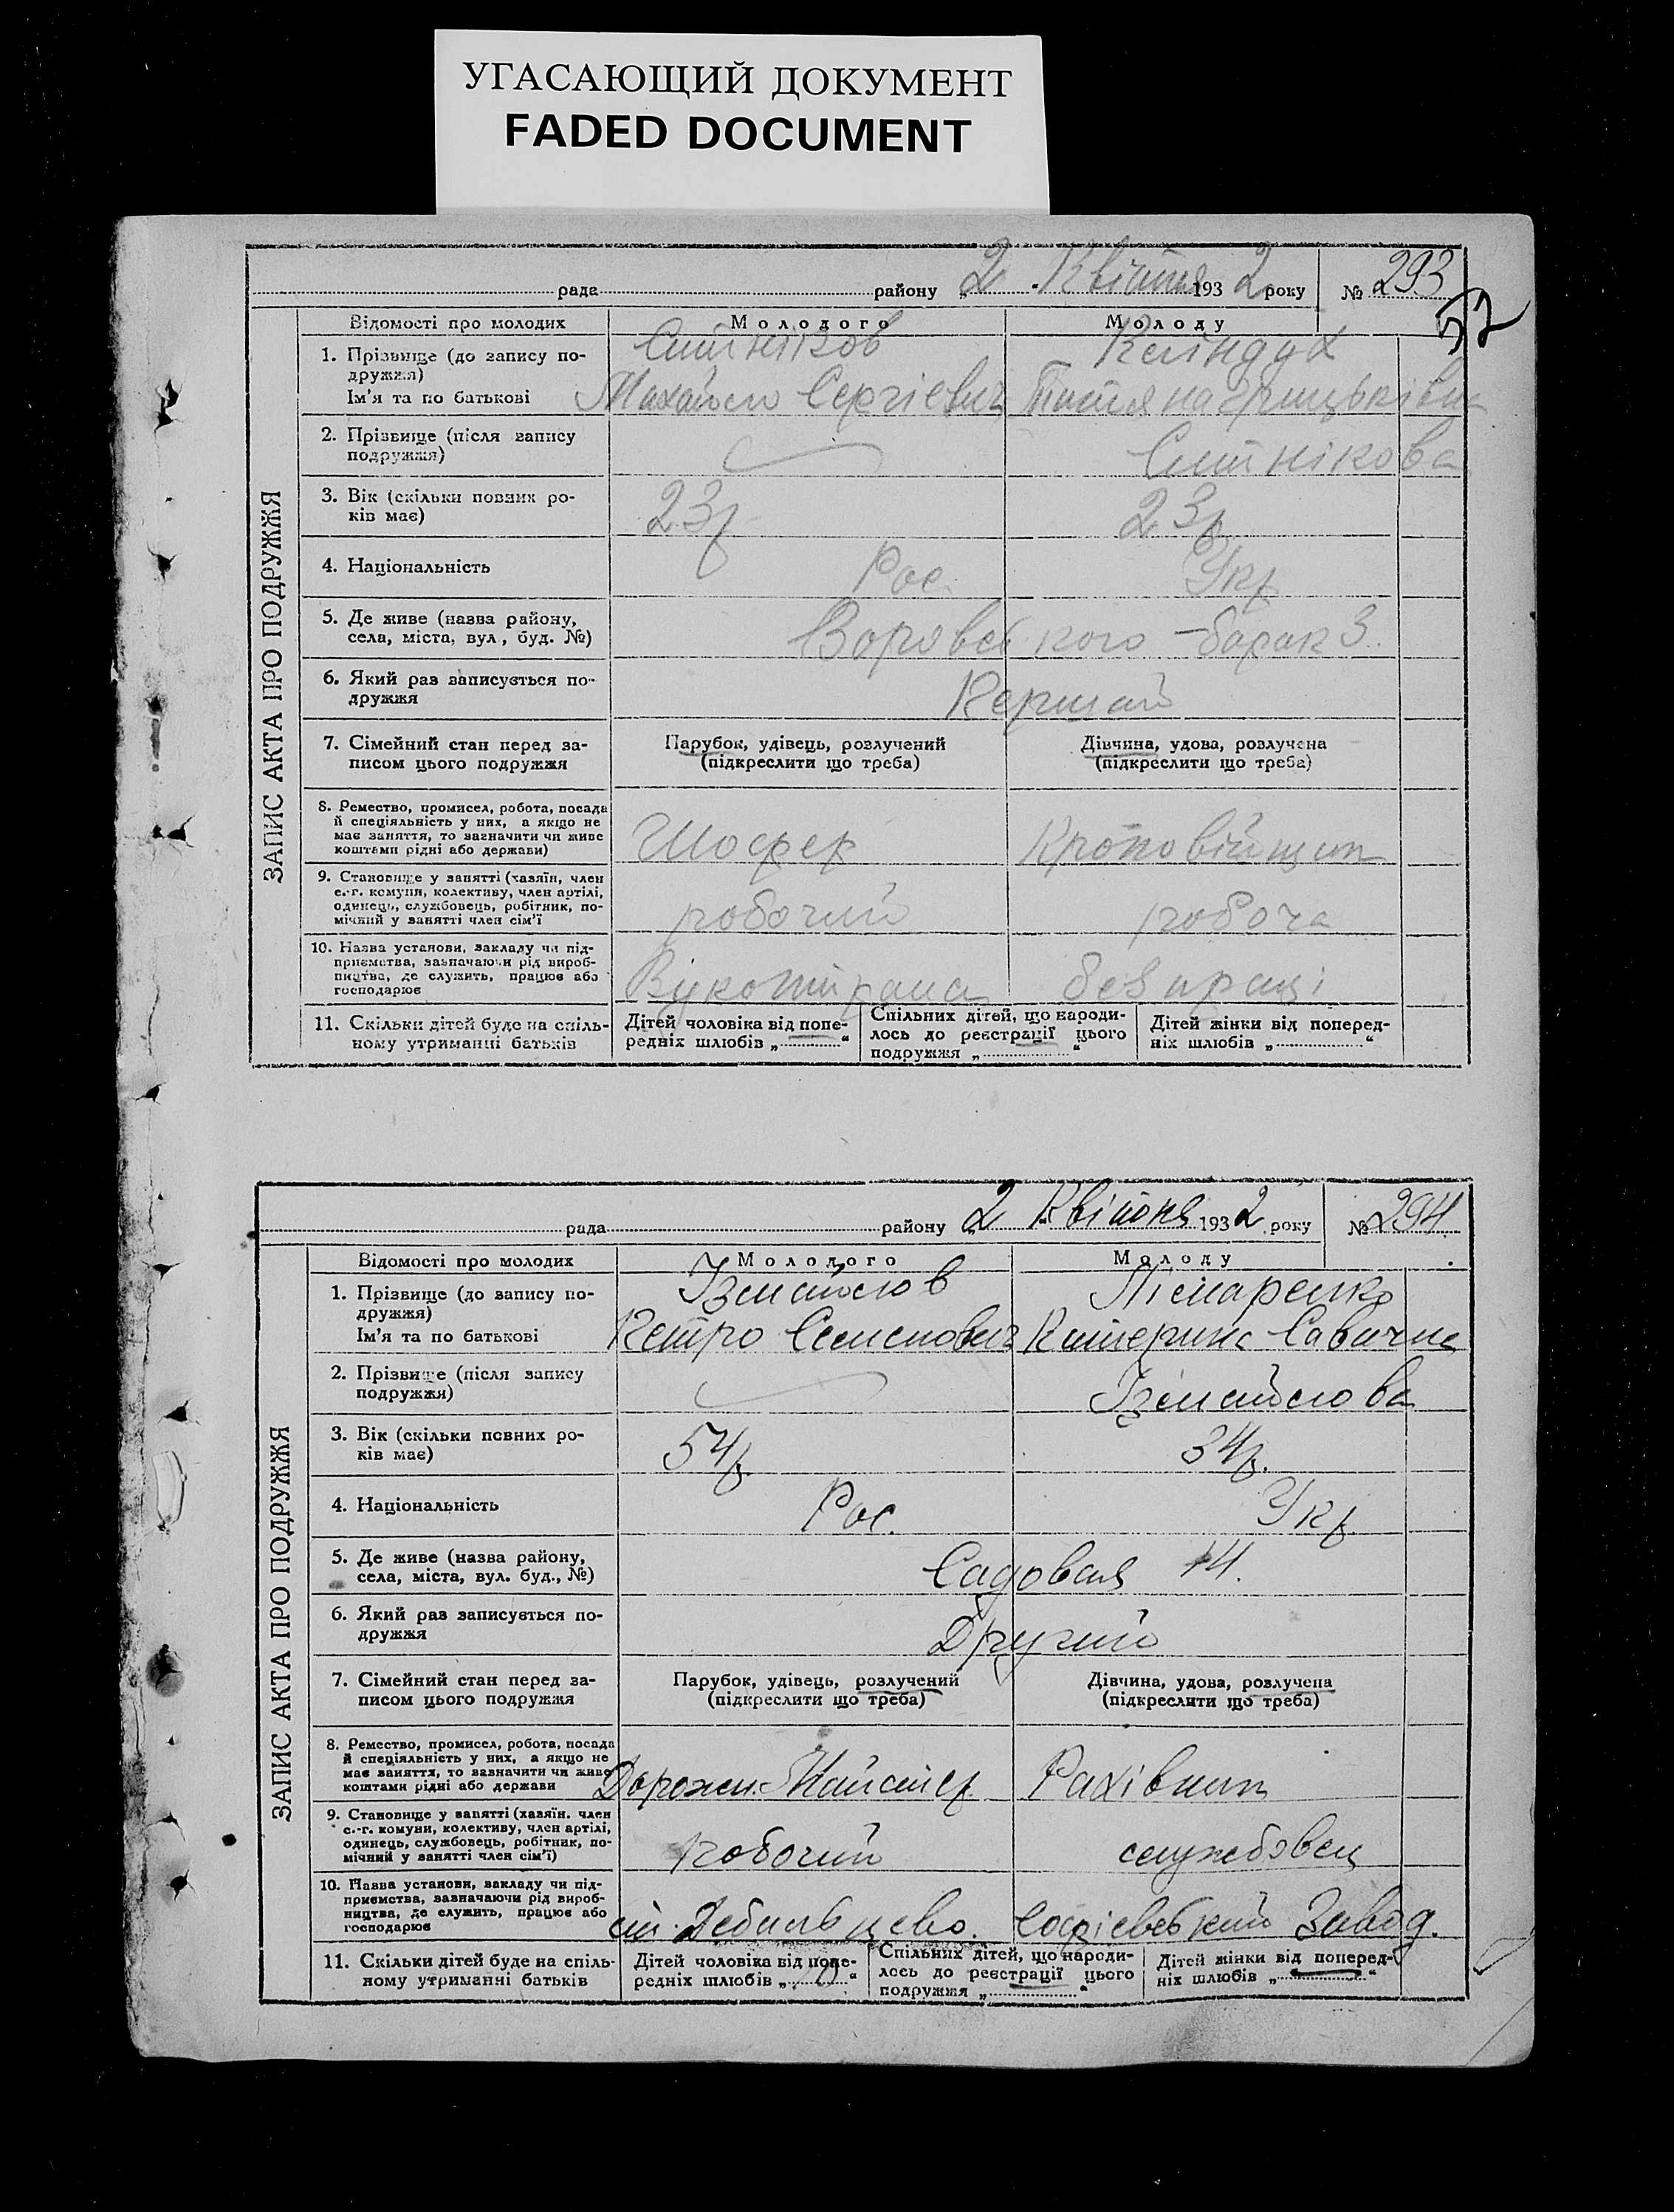 УГАСАЮЩИЙ ДОКУМЕНТ
FADED DOCUMENT
рада району „2 Квітня 1932 року № 293
57
ЗАПИС АКТА ПРО ПОДРУЖЖЯ
Відомості про молодих Молодого Молоду
1. Прізвище (до запису по-
дружжя)
Ім'я та по батькові
Ситніков
Михайло Сергієвич
Тетяна Грицьківна
2. Прізвище (після запису
подружжя)
Ситнікова
3. Вік (скільки повних ро-
ків має)
23р 23р
4. Національність Рос. Укр
5. Де живе (назва району,
села, міста, вул, буд. №)
Воровського - барак 3.
6. Який раз записується по-
дружжя
Перший
7. Сімейний стан перед за-
писом цього подружжя
Парубок, удівець, розлучений
(підкреслити що треба)
Дівчина, удова, розлучена
(підкреслити що треба)
8. Ремество, промисел, робота, посада
й спеціяльність у них, а якщо не
має заняття, то вазначити чи живе
коштами рідні або держави)
Шофер
9. Становище у занятті (хазяїн, член
с.-г. комуни, колективу, член артілі,
одинець, службовець, робітник, по-
мічний у занятті член сім'ї
робочий робоча
10. Назва установи, закладу чи під-
приємства, зазначаючи рід вироб-
ництва, де служить, працює або
господарює
без праці
11. Скільки дітей буде на спіль-
ному утриманні батьків
Дітей чоловіка від попе-
редніх шлюбів „ “
Спільних дітей, що народи-
лось до реєстрації цього
подружжя „ “
Дітей жінки від поперед-
ніх шлюбів „ “
рада району „2 Квітня 1932 року № 294
ЗАПИС АКТА ПРО ПОДРУЖЖЯ
Відомості про молодих Молодого Молоду
1. Прізвище (до запису по-
дружжя)
Ім'я та по батькові
Ізмайлов
Петро Семенович
Катерина Савична
2. Прізвище (після запису
подружжя)
Ізмайлова
3. Вік (скільки повних ро-
ків має)
54р. 34р.
4. Національність Рос. Укр
5. Де живе (назва району,
села, міста, вул. буд., №)
Садовая 14.
6. Який раз записується по-
дружжя
Другий
7. Сімейний стан перед за-
писом цього подружжя
Парубок, удівець, розлучений
(підкреслити що треба)
Дівчина, удова, розлучена
(підкреслити що треба)
8. Ремество, промисел, робота, посада
й спеціяльність у них, а якщо не
має заняття, то вазначити чи живе
коштами рідні або держави
Дорожн. Майстер Рахівник
9. Становище у занятті (хазяїн. член
с.-г. комуни, колективу, член артілі,
одинець, службовець, робітник, по-
мічний у занятті член сім'ї)
робочий службовец
10. Назва установи, закладу чи під-
приємства, зазначаючи рід вироб-
ництва, де служить, працює або
господарює
ст. Дебальцево. Софієвський Завод.
11. Скільки дітей буде на спіль-
ному утриманні батьків
Дітей чоловіка від попе-
редніх шлюбів „ “
Спільних дітей, що народи-
лось до реєстрації цього
подружжя „ “
Дітей жінки від поперед-
ніх шлюбів „ “